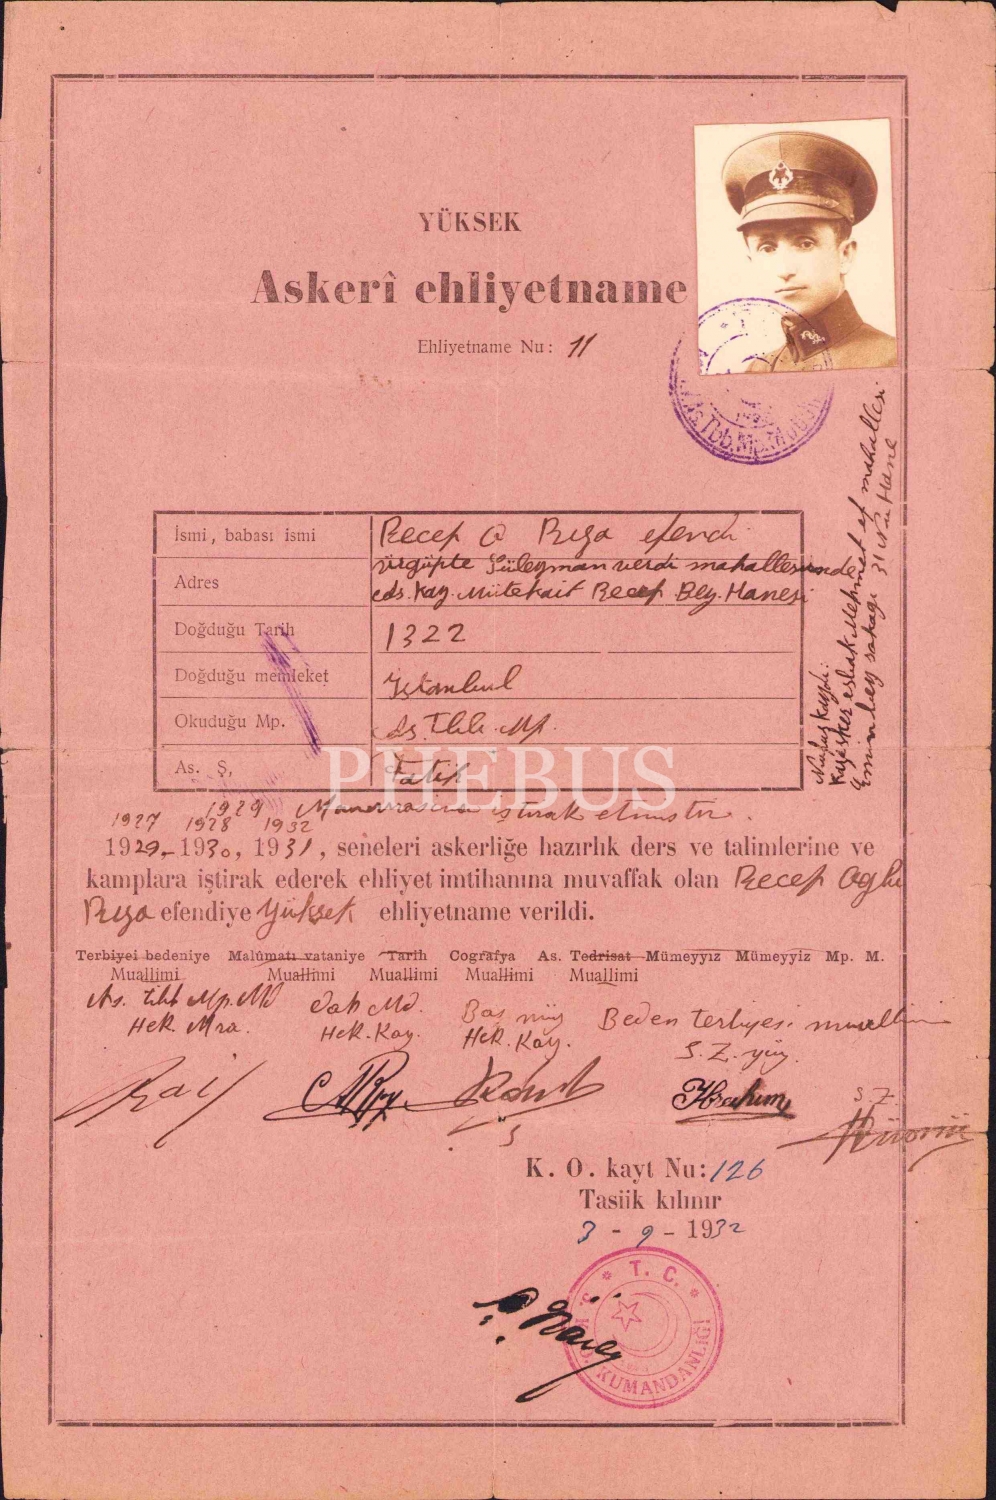 YÜKSEK
Askerî ehliyetname
Ehliyetname Nu: 11
İsmi, babası ismi Recep O Rıza efendi
Adres Ürgüpte Süleyman verdi mahallesinde
eds. Kay. Mütekait Recep Bey. Hanesi
Doğduğu Tarih 1322
Doğduğu memleket İstanbul
Okuduğu Mp. As. Tıbb. Mp.
As. Ş, Fatih
Nufus kaydı:
Kazasker eshak Mehmet ef mahallesi
Emin bey sokağı 31 Nu Hane
PHEBUS
1929 Manevrasına iştirak etmiştir.
1927 1928 1932
1929-1930, 1931, seneleri askerliğe hazırlık ders ve talimlerine ve
kamplara iştirak ederek ehliyet imtihanına muvaffak olan Recep Oğlu
Rıza efendiye Yüksek ehliyetname verildi.
Terbiyei bedeniye Malûmatı vataniye Tarih Coğrafya As. Tedrisat Mümeyyiz Mümeyyiz Mp. M.
Muallimi Muallimi Muallimi Muallimi Muallimi
As. Tıbb Mp. Md Dah Md. Baş Beden Terbiyesi muallimi
Hek. Mra. Hek. Kay. Hek. Kay. S. Z.
İbrahim S. Z.
K. O. kayt Nu: 126
Tasiik kılınır
3 - 9 - 1932
T. C.
K. O. KUMANDANLIĞI